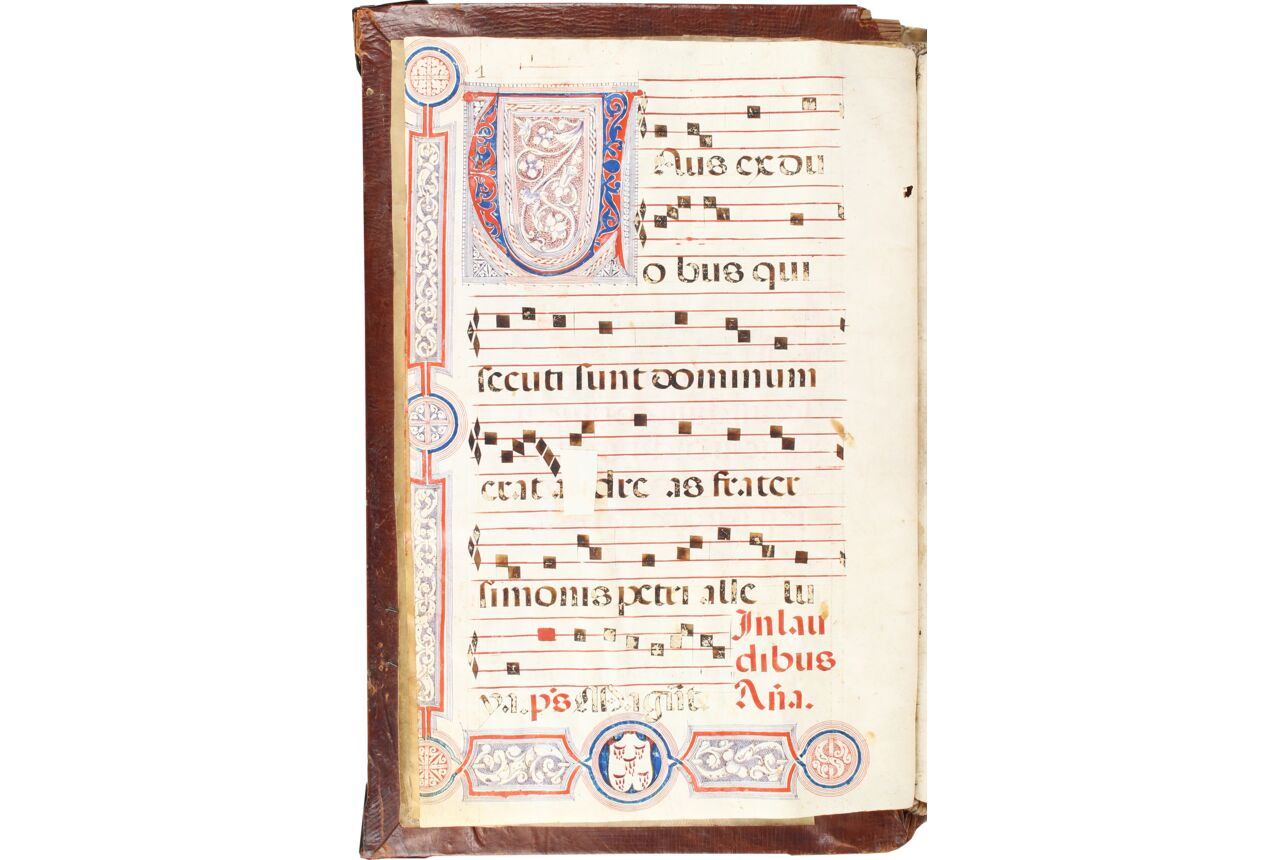 1
UAus ex du
o bus qui
secuti sunt dominum
erat a dre as frater
simonis petri alle lu
In lau
dibus
y.a. p's Magn̄t
Aña.